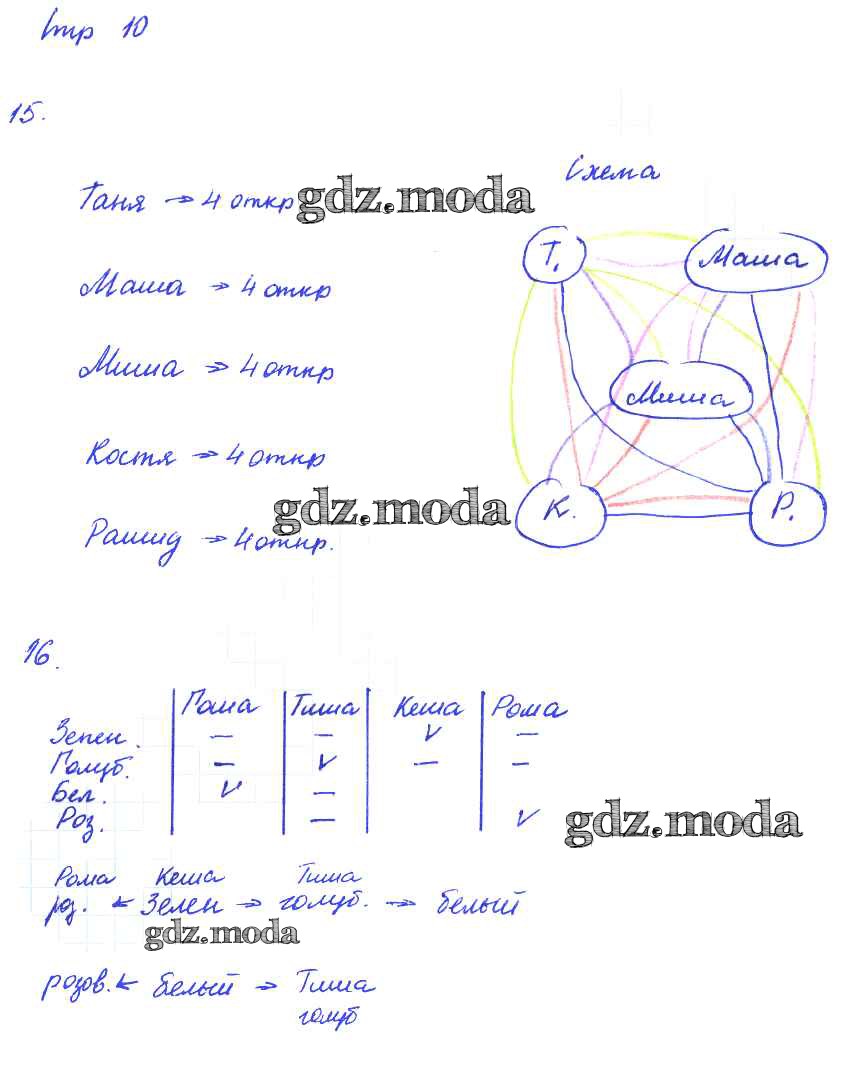 Стр 10
15.
Таня → 4 откр
gdz.moda
Схема
Маша → 4 откр
Миша → 4 откр
Костя → 4 откр
Рашид → 4 откр.
Т.
Маша
Миша
К.
Р.
gdz.moda
16.
Гоша Тиша Кеша Рома
Зелен. – – v –
Голуб. – v – –
Бел. v –
Роз. – v
gdz.moda
Рома Кеша Тиша
роз. ← Зелен → голуб. → белый
gdz.moda
розов. ← белый → Тиша
голуб